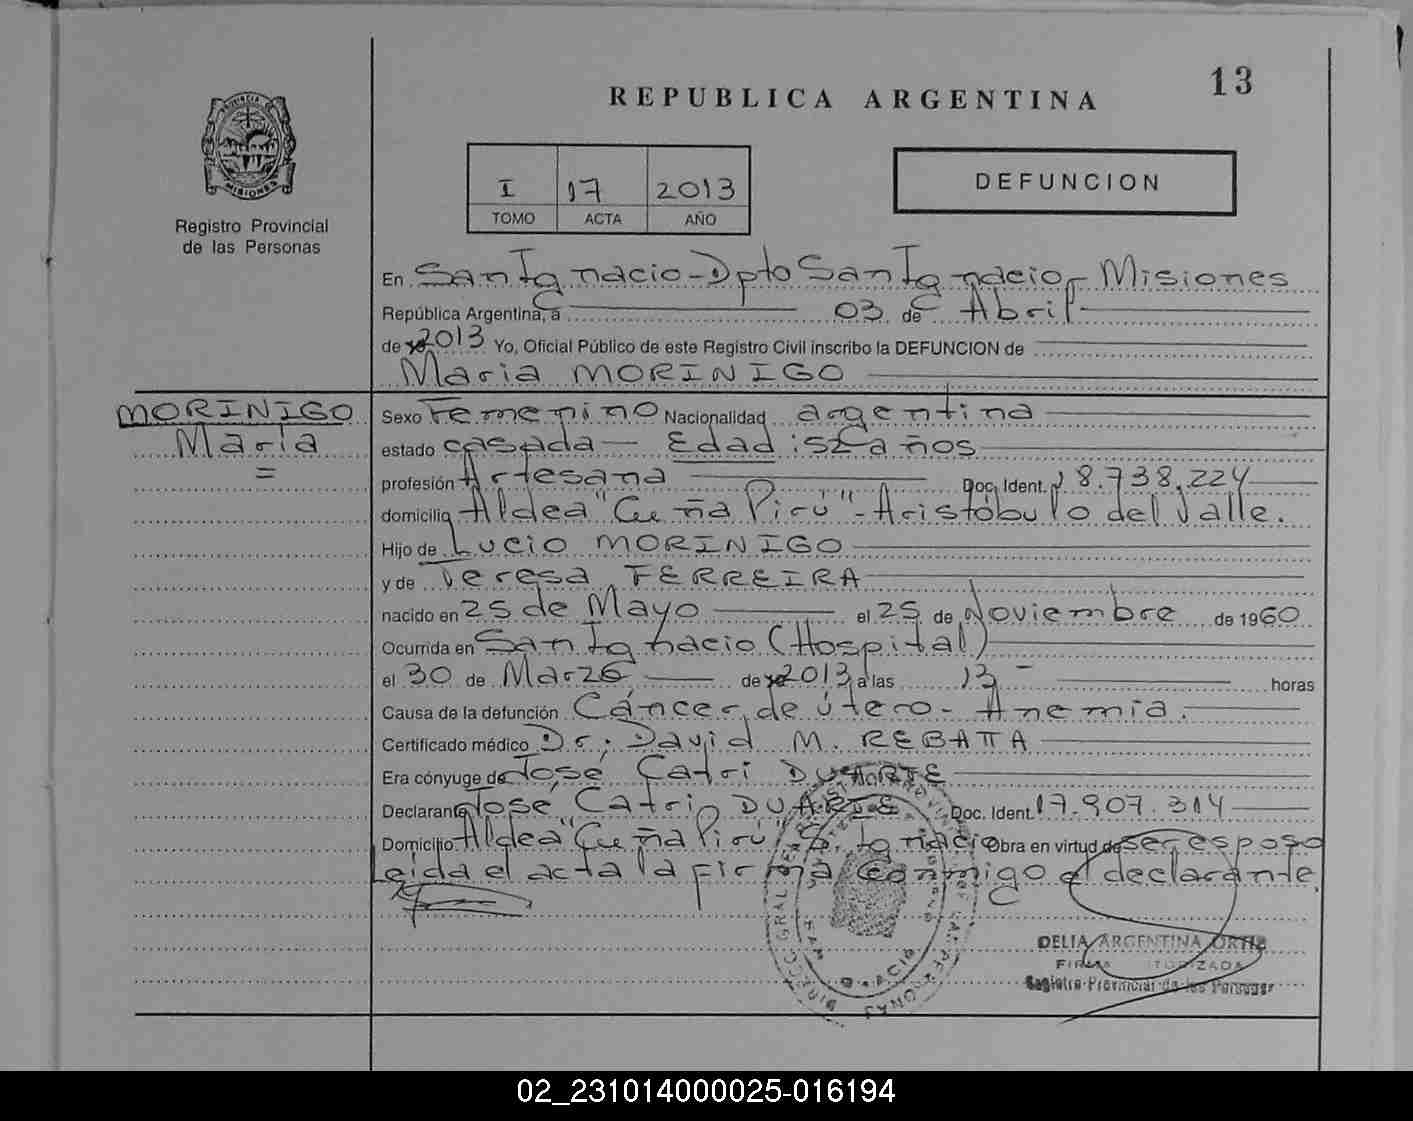 13
REPUBLICA ARGENTINA
I 17 2013
TOMO ACTA AÑO
DEFUNCION
PROVINCIA DE MISIONES
Registro Provincial
de las Personas
En San Ignacio - Dpto San Ignacio - Misiones
República Argentina, a 03 de Abril
de 2013 Yo, Oficial Público de este Registro Civil inscribo la DEFUNCION de
Maria MORINIGO
MORINIGO
María
=
Sexo Femenino Nacionalidad argentina
estado casada — Edad: 52 años
profesión Artesana Doc. Ident. 18.738.224
domicilio Aldea "Cuña Pirú" - Aristóbulo del Valle.
Hijo de Lucio MORINIGO
y de Teresa FERREIRA
nacido en 25 de Mayo el 25 de Noviembre de 1960
Ocurrida en San Ignacio (Hospital)
el 30 de Marzo de 2013 a las 13 — horas
Causa de la defunción Cáncer de útero - Anemia.
Certificado médico Dr. David M. REBATTA
Era cónyuge de José Catri DUARTE
Declarante José Catrip DUARTE Doc. Ident. 17.907.314
Domicilio Aldea "Cuña Pirú" S. Ignacio Obra en virtud de ser esposo
Leída el acta la firma conmigo el declarante.
DELIA ARGENTINA ORTIZ
FIRMA AUTORIZADA
Registro Provincial de las Personas
02_231014000025-016194